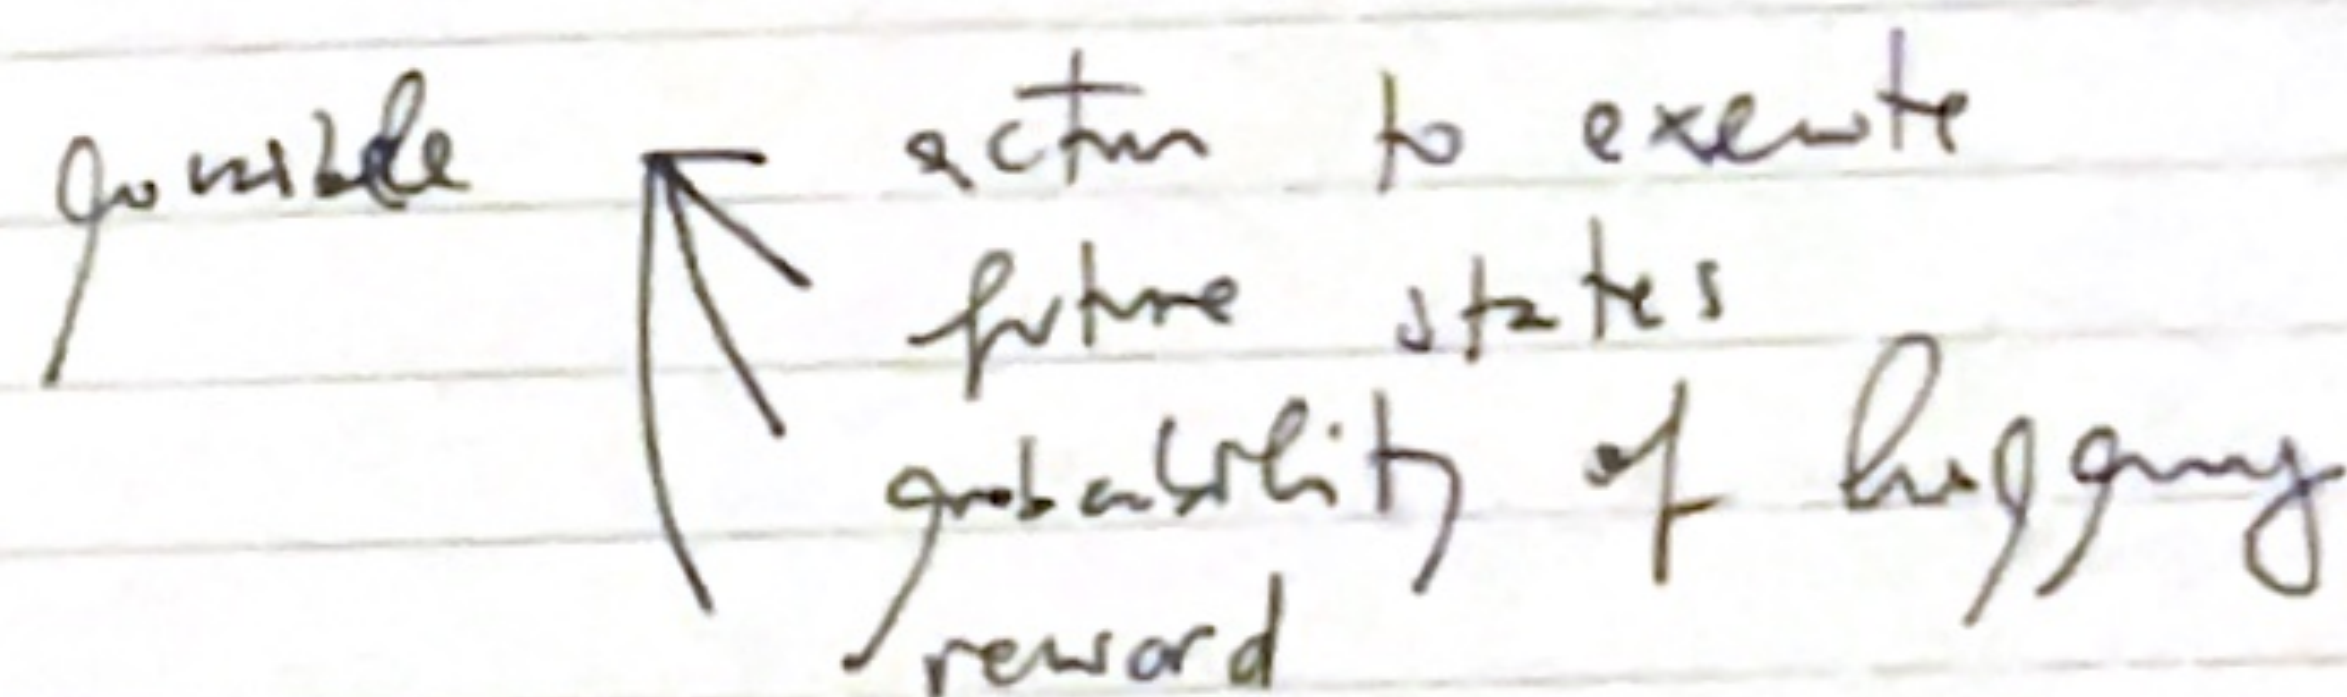 possible action to execute
future states
probability of happening
reward